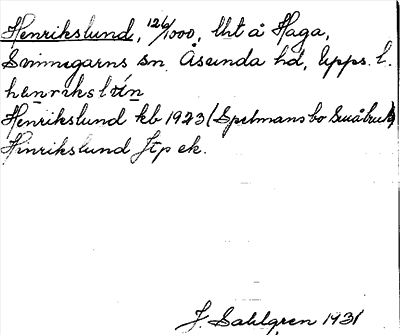 Henrikslund, 126/1000, lht å Haga,
Svinnegarns sn, Åsunda hd, Upps. l.
Henrikslund kb 1923 (Spelmansbo Småbruk)
Hinrikslund Jtp ek.
J. Sahlgren 1931